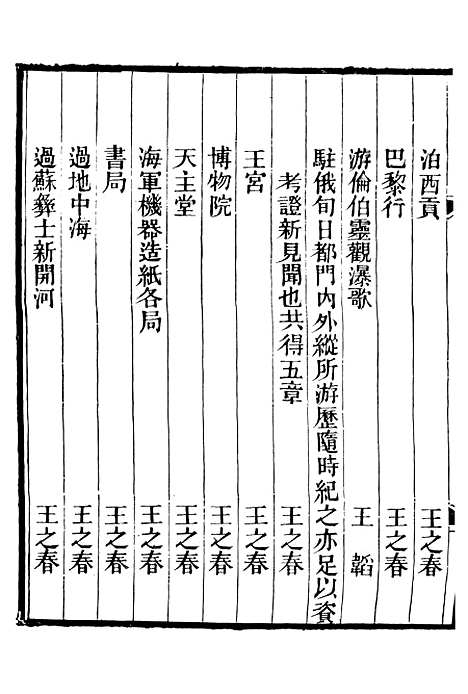 泊西貢 王之春
巴黎行 王之春
游倫伯靈觀瀑歌 王韜
駐俄旬日都門內外縱所游歷隨時紀之亦足以資
考證新見聞也共得五章 王之春
王宮 王之春
博物院 王之春
天主堂 王之春
海軍機器造紙各局 王之春
書局 王之春
過地中海 王之春
過蘇彝士新開河 王之春